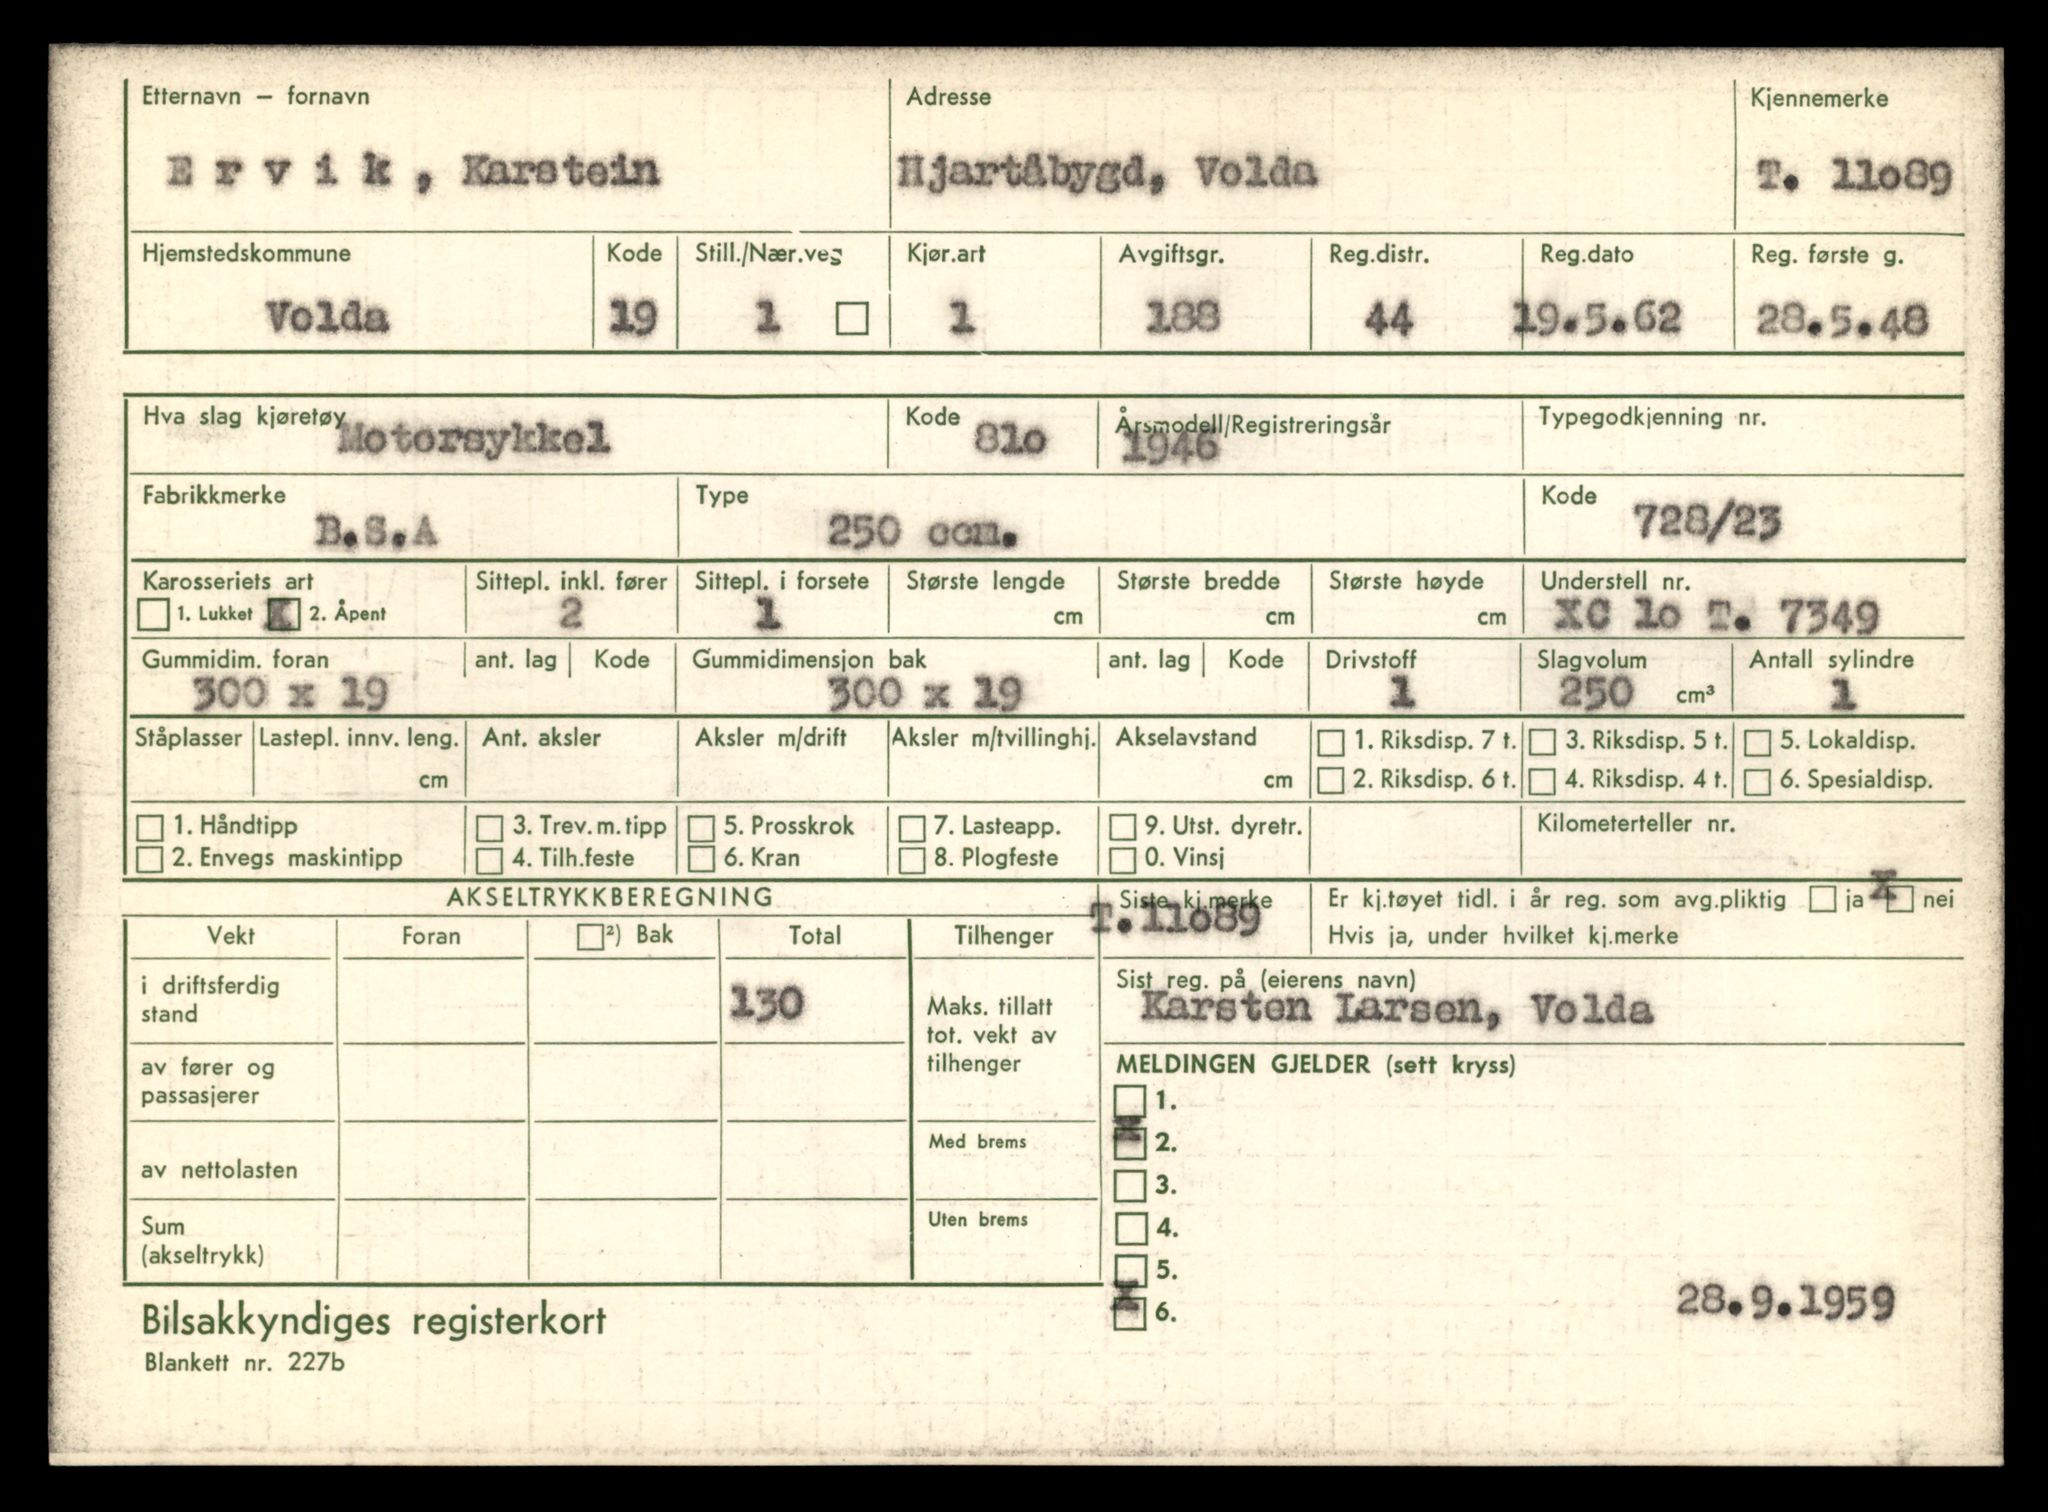 Etternavn – fornavn Adresse Kjennemerke
E r v i k , Karstein Hjartåbygd, Volda T. 11o89
Hjemstedskommune Kode Still./Nær.veg Kjør.art Avgiftsgr. Reg.distr. Reg.dato Reg. første g.
Volda 19 1 1 188 44 19.5.62 28.5.48
Hva slag kjøretøy Kode Årsmodell/Registreringsår Typegodkjenning nr.
Motorsykkel 81o 1946
Fabrikkmerke Type Kode
B.S.A 250 ccm. 728/23
Karosseriets art Sittepl. inkl. fører Sittepl. i forsete Største lengde Største bredde Største høyde Understell nr.
1. Lukket X 2. Åpent 2 1 cm cm cm XC 1o T. 7349
Gummidim. foran ant. lag Kode Gummidimensjon bak ant. lag Kode Drivstoff Slagvolum Antall sylindre
300 x 19 300 x 19 1 250 cm³ 1
Ståplasser Lastepl. innv. leng. Ant. aksler Aksler m/drift Aksler m/tvillinghj. Akselavstand 1. Riksdisp. 7 t. 3. Riksdisp. 5 t. 5. Lokaldisp.
cm cm 2. Riksdisp. 6 t. 4. Riksdisp. 4 t. 6. Spesialdisp.
1. Håndtipp 3. Trev. m. tipp 5. Prosskrok 7. Lasteapp. 9. Utst. dyretr. Kilometerteller nr.
2. Envegs maskintipp 4. Tilh.feste 6. Kran 8. Plogfeste 0. Vinsj
AKSELTRYKKBEREGNING Siste kj.merke Er kj.tøyet tidl. i år reg. som avg.pliktig ja X nei
T.11o89
Vekt Foran ²) Bak Total Tilhenger Hvis ja, under hvilket kj.merke
i driftsferdig stand 130 Maks. tillatt tot. vekt av tilhenger
Sist reg. på (eierens navn)
Karsten Larsen, Volda
av fører og passasjerer
MELDINGEN GJELDER (sett kryss)
1.
X 2.
Med brems
av nettolasten
3.
4.
Sum (akseltrykk) Uten brems
5.
X 6.
28.9.1959
Bilsakkyndiges registerkort
Blankett nr. 227b